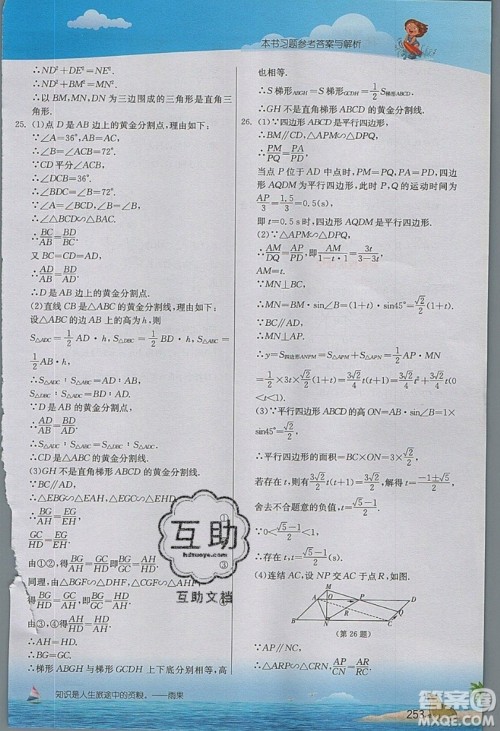 本书习题参考答案与解析
∴ND²+DE²=NE².
∴ND²+BM²=MN².
∴以BM,MN,DN为三边围成的三角形是直角三
角形.
25. (1)点D是AB边上的黄金分割点,理由如下:
∵∠A=36°,∠ACB=72°,
∴∠ABC=72°.
∵CD平分∠ACB,
∴∠DCB=36°.
∴∠BDC=∠ABC=72°.
∵∠A=∠BCD,∠ABC=∠ABC,
∴△BDC∽△BCA.
∴BC/AB=BD/BC.
又BC=CD=AD,
∴AD/AB=BD/AD.
∴D是AB边上的黄金分割点.
(2)直线CD是△ABC的黄金分割线,理由如下:
设△ABC中AB边上的高为h,则
S△ADC=1/2 AD·h, S△DBC=1/2 BD·h, S△ABC=1/2
AB·h.
∴S△ADC∶S△ABC=AD∶AB,
S△DBC∶S△ADC=BD∶AD.
∵D是AB的黄金分割点,
∴AD/AB=BD/AD.
∴S△ADC∶S△ABC=S△DBC∶S△ADC.
∴CD是△ABC的黄金分割线.
(3)GH不是直角梯形ABCD的黄金分割线.
∵BC∥AD,
∴△EBG∽△EAH,△EGC∽△EHD.
∴BG/AH=EG/EH, ①
GC/HD=EG/EH. ②
由①②,得BG/AH=GC/HD,即BG/GC=AH/HD. ③
同理,由△BGF∽△DHF,△CGF∽△AHF,
得BG/HD=GC/AH,即BG/GC=HD/AH. ④
由③,④得AH/HD=HD/AH.
∴AH=HD.
∴BG=GC.
∴梯形ABGH与梯形GCDH上下底分别相等,高
也相等.
∴S梯形ABGH=S梯形GCDH=1/2 S梯形ABCD.
∴GH不是直角梯形ABCD的黄金分割线.
26. (1)∵四边形ABCD是平行四边形,
∴BM∥CD,△APM∽△DPQ,
∴PM/PQ=AP/PD.
当点P为AD中点时,PM=PQ,此时,四边
形AQDM为平行四边形,此时Q的运动时间为
AP/3=1.5/3=0.5(s),
即t=0.5s时,四边形AQDM是平行四边形.
(2)∵△APM∽△DPQ,
∴AM/DQ=AP/PD,即AM/(1-t·1)=3t/(3-3t).
∴AM=t.
∵MN⊥BC,
∴MN=BM·sin∠B=(1+t)·sin45°=√2/2
(1+t).
∵MN⊥AP.
∴y=S四边形ANPM=S△APM+S△APN=1/2 AP·MN
=1/2×3t×√2/2(1+t)=3√2/4 t²+3√2/4 t.
(3)∵平行四边形ABCD的高ON=AB·sin∠B=1×
sin45°=√2/2,
∴平行四边形的面积=BC×√2/2=3√2/2.
舍去不合题意的负值,t=(√5-1)/2
∵0<(√5-1)/2<1,
∴存在,t=(√5-1)/2(s).
(4)连结AC,设NP交AC于点F.
M
A
P
D
B
N
C
Q
(第26题)
∵AP∥CN,
互助
hdzuoye.com
互助文档
知识是人生旅途中的资粮。——雨果
253
答案圈
MXQE.COM